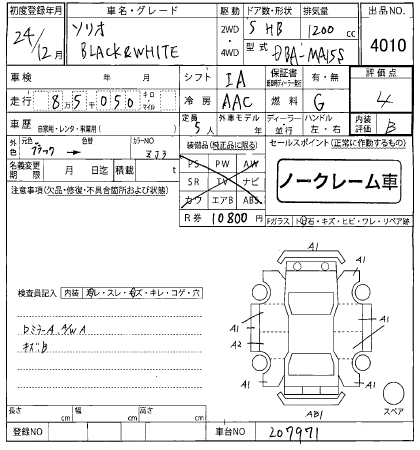 初度登録年月 車名・グレード 駆動 ドア数・形状 排気量 出品NO.
24/12月 ソリオ BLACK&WHITE 2WD・4WD 5 HB 1200cc 4010
型式 DBA-MA15S
車検 年 月 シフト IA 保証書 有・無 評価点
走行 8万5千050 キロ マイル 冷房 AAC 燃料 G 4
車歴 自家用・レンタ・事業用( ) 定員 5人 外車モデル 年 ディーラー 並行 ハンドル 左・右 内装評価 B
外色 元色 ブラック → 色替 カラーNO ZJ3
装備品(純正品に限る) セールスポイント(正常に作動するもの)
名義変更期限 月 日迄 積載 t
PS PW AW
SR TV ナビ
カワ エアB ABS
ノークレーム車
注意事項(欠品・修復・不具合箇所および状態)
R券 10800円
Fガラス ト石・キズ・ヒビ・ワレ・リペア跡
検査員記入 内装 ヨゴレ・スレ・キズ・キレ・コゲ・穴
DミラーA、A/W A
キズB
A1
A1 A1
A1 A1
A2
A1 A1
AB1
スペア
長さ cm 幅 cm 高さ cm
登録NO 車台NO 207971